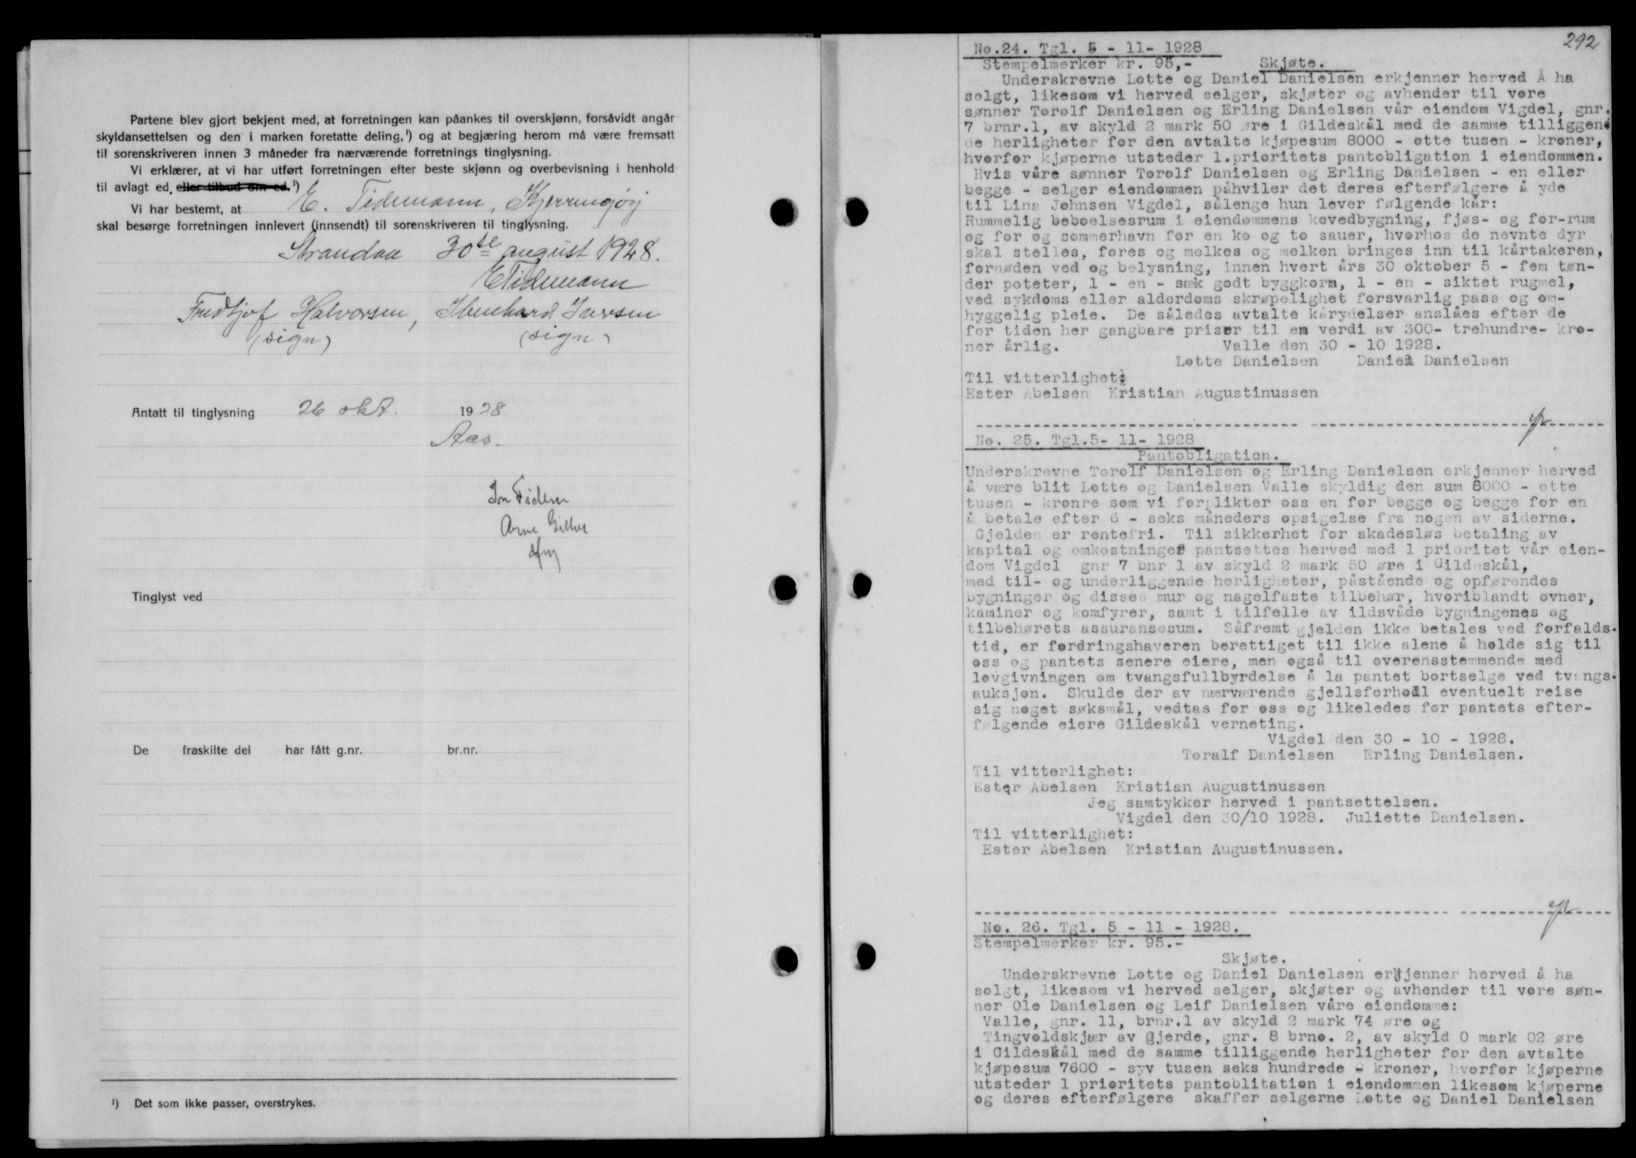 Partene blev gjort bekjent med, at forretningen kan påankes til overskjønn, forsåvidt angår
skyldansettelsen og den i marken foretatte deling,¹) og at begjæring herom må være fremsatt
til sorenskriveren innen 3 måneder fra nærværende forretnings tinglysning.
Vi erklærer, at vi har utført forretningen efter beste skjønn og overbevisning i henhold
til avlagt ed, eller tilbud om ed.¹)
Vi har bestemt, at E. Tidemann, Kjerringøy
skal besørge forretningen innlevert (innsendt) til sorenskriveren til tinglysning.
Strandaa 30te august 1928.
E Tidemann
Fridtjof Halvorsen, Iversen
(sign) (sign)
Antatt til tinglysning 26 okt. 1928
Aas.
Tinglyst ved
De fraskilte del har fått g.nr. br.nr.
¹) Det som ikke passer, overstrykes.
292
No.24. Tgl. 5 - 11- 1928
Stempelmerker kr. 95,- Skjøte.
Underskrevne Lotte og Daniel Danielsen erkjenner herved Å ha
solgt, likesom vi herved selger, skjøter og avhender til vore
sønner Torolf Danielsen og Erling Danielsen vår eiendom Vigdel, gnr.
7 brnr.1, av skyld 2 mark 50 øre i Gildeskål med de samme tilliggen
de herligheter for den avtalte kjøpesum 8000 - otte tusen - kroner,
hvorfor kjøperne utsteder 1.prioritets pantobligation i eiendommen.
Hvis våre sønner Torolf Danielsen og Erling Danielsen - en eller
begge - selger eiendommen påhviler det deres efterfølgere å yde
til Lina Johnsen Vigdel, sålenge hun lever følgende kår:
Rummelig beboelsesrum i eiendommens hovedbygning, fjøs- og for-rum
og for og sommerhavn for en ko og to sauer, hvorhos de nevnte dyr
skal stelles, fores og melkes og melken bringes inn til kårtakeren,
fornøden ved og belysning, innen hvert års 30 oktober 5 - fem tøn-
der poteter, 1 - en - sæk godt byggkorn, 1 - en - siktet rugmel,
ved sykdoms eller alderdoms skrøpelighet forsvarlig pass og om-
hyggelig pleie. De således avtalte kårydelser anslåes efter de
for tiden her gangbare priser til en verdi av 300- trehundre- kro-
ner årlig. Valle den 30 - 10 1928.
Lotte Danielsen Daniel Danielsen
Til vitterlighet:
Ester Abelsen Kristian Augustinussen
No. 25. Tgl.5- 11- 1928
Pantobligation.
Underskrevne Torolf Danielsen og Erling Danielsen erkjenner herved
å være blit Lotte og Danielsen Valle skyldig den sum 8000 - otte
tusen - kronre som vi forplikter oss en for begge og begge for en
å betale efter 6 - seks måneders opsigelse fra nogen av siderne.
Gjelden er rentefri. Til sikkerhet for skadesløs betaling av
kapital og omkostninger pantsettes herved med 1 prioritet vår eien-
dom Vigdel gnr 7 bnr 1 av skyld 2 mark 50 øre i Gildeskål,
med til- og underliggende herligheter, påstående og opførendes
bygninger og disses mur og nagelfaste tilbehør, hvoriblandt ovner,
kaminer og komfyrer, samt i tilfelle av ildsvåde bygningenes og
tilbehørets assuransesum. Såfremt gjelden ikke betales ved forfalds-
tid, er fordringshaveren berettiget til ikke alene å holde sig til
oss og pantets senere eiere, men også til overensstemmende med
lovgivningen om tvangsfullbyrdelse å la pantet bortselge ved tvangs-
auksjon. Skulde der av nærværende gjellsforhold eventuelt reise
sig noget søksmål, vedtas for oss og likeledes for pantets efter-
følgende eiere Gildeskål verneting.
Vigdel den 30 - 10 - 1928.
Toralf Danielsen Erling Danielsen.
Til vitterlighet:
Ester Abelsen Kristian Augustinussen
Jeg samtykker herved i pantsettelsen.
Vigdel den 30/10 1928. Juliette Danielsen.
Til vitterlighet:
Ester Abelsen Kristian Augustinussen.
No. 26. Tgl. 5 - 11 - 1928.
Stempelmerker kr. 95.-
Skjøte.
Underskrevne Lotte og Daniel Danielsen erkjenner herved å ha
solgt, likesom vi herved selger, skjøter og avhender til vore søn-
ner Ole Danielsen og Leif Danielsen våre eiendomme:
Valle, gnr. 11, brnr.1 av skyld 2 mark 74 øre og
Tingvoldskjær av Gjerde, gnr. 8 brno. 2, av skyld 0 mark 02 øre
i Gildeskål med de samme tilliggende herligheter for den avtalte
kjøpesum 7600 - syv tusen seks hundrede - kroner, hvorfor kjøperne
utsteder 1 prioritets pantoblitation i eiendommen likesom kjøperne
og deres efterfølgere skaffer selgerne Lotte og Daniel Danielsen